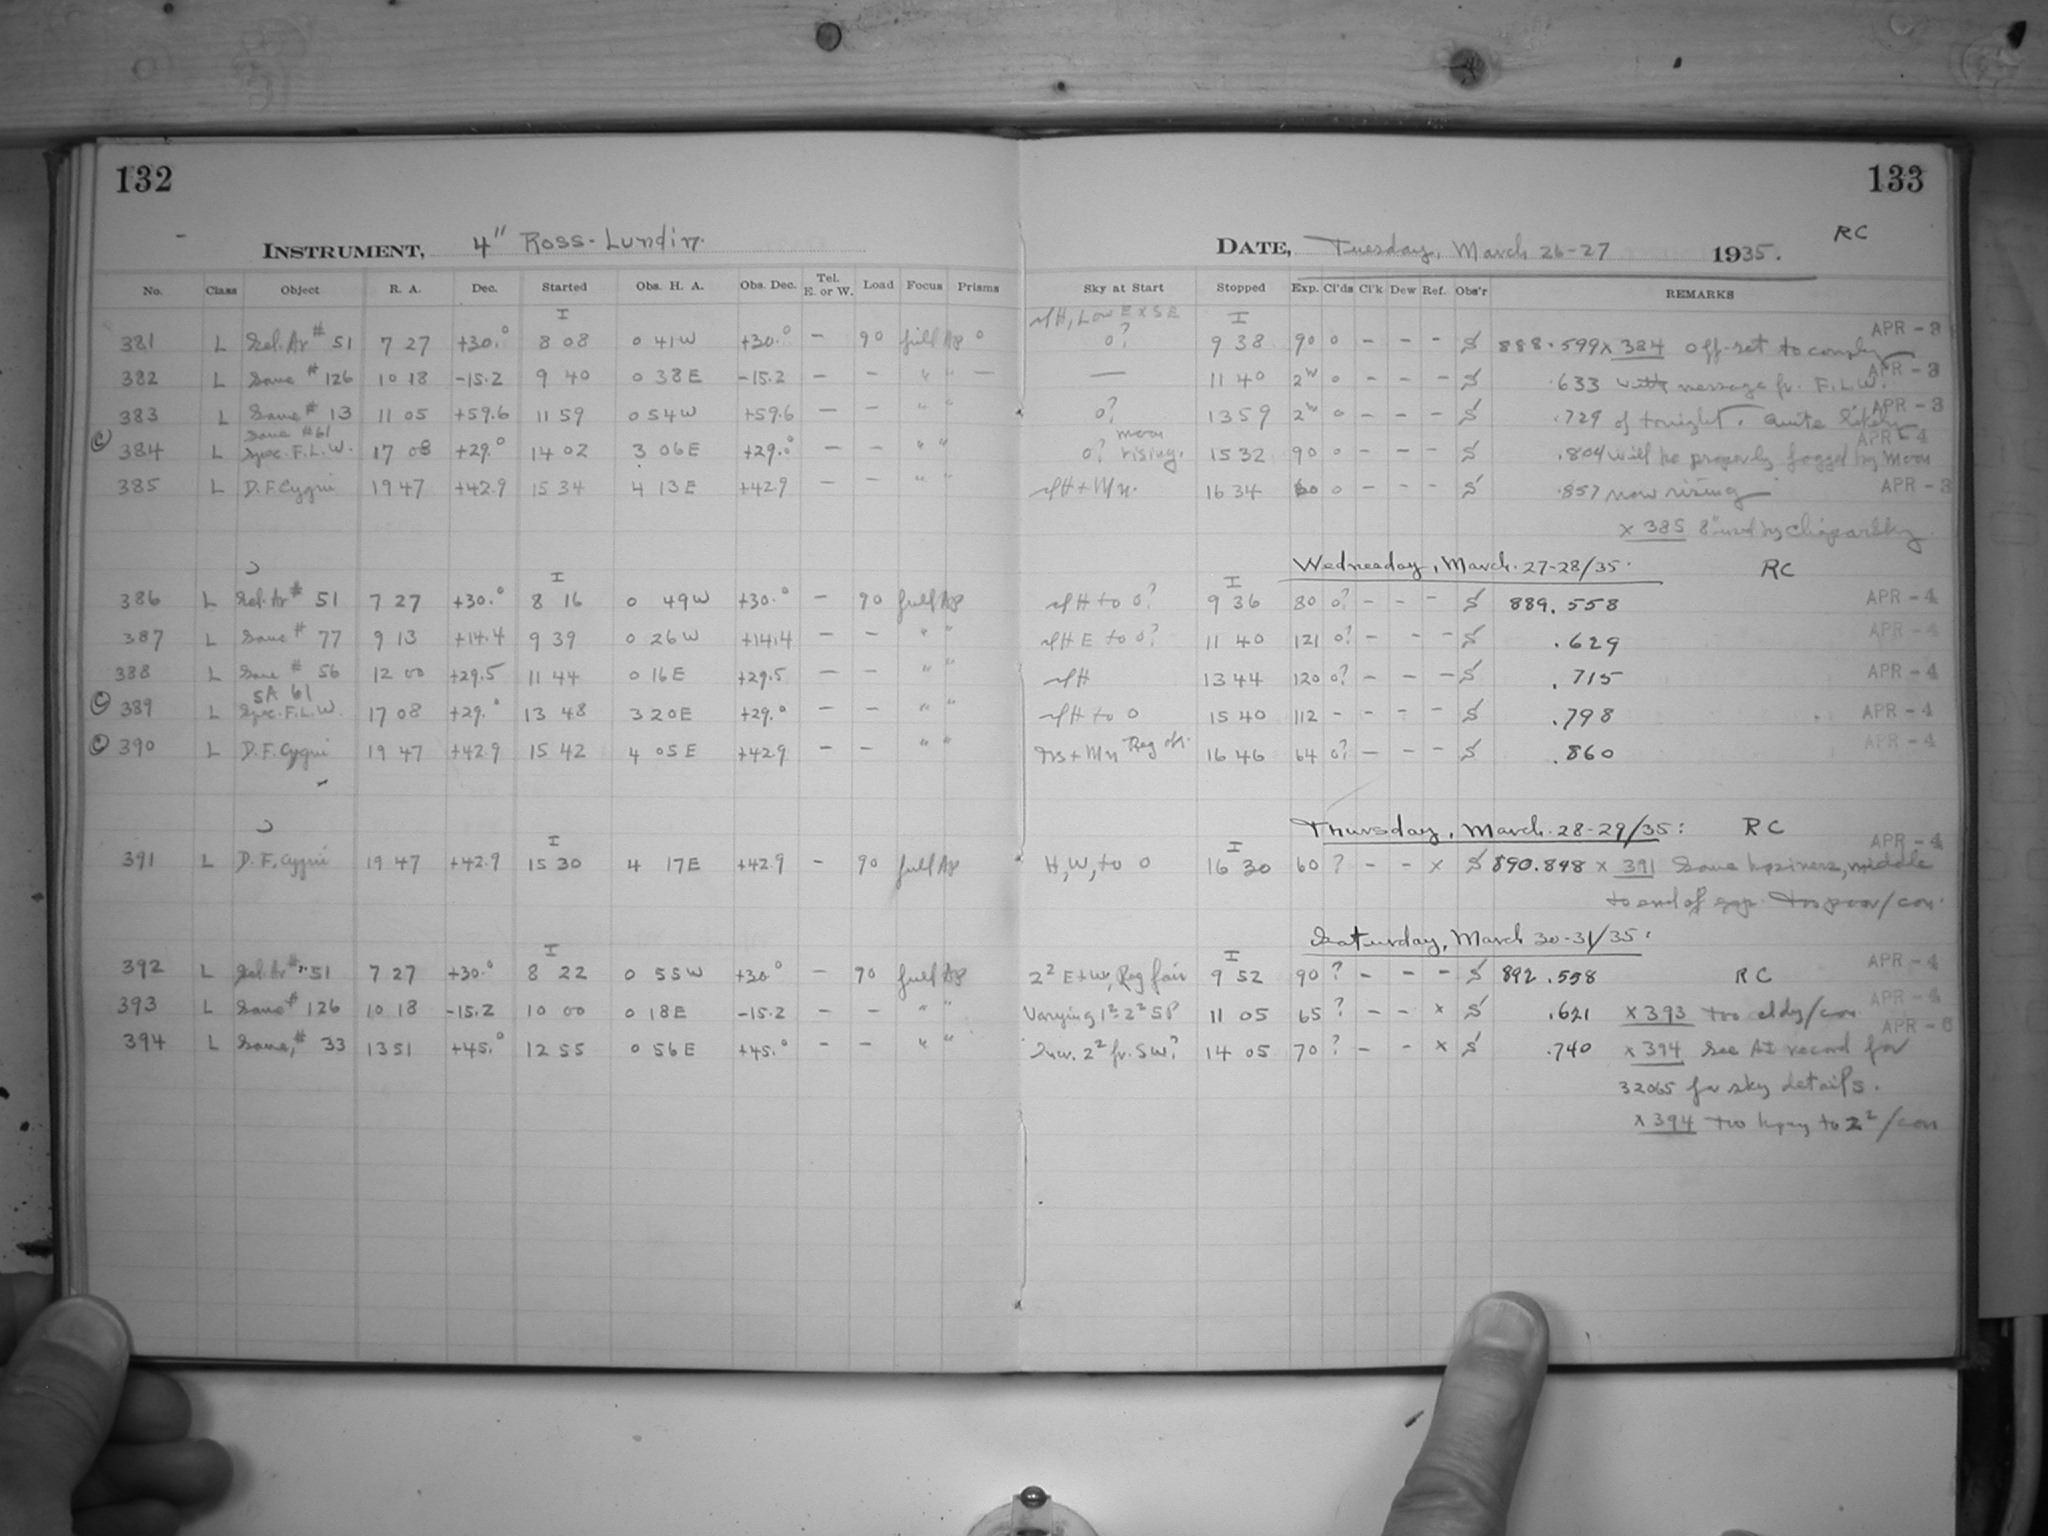 132
133
INSTRUMENT, 4" Ross-Lundin.
DATE, Tuesday, March 26-27 1935. RC
No. Class Object R. A. Dec. Started Obs. H. A. Obs. Dec. Tel. E. or W. Load Focus Prisms Sky at Start Stopped Exp. Cl'ds Cl'k Dew Ref. Obs'r REMARKS
I I
381 L Sel. Ar # 51 7 27 +30.° 8 08 0 41W +30.° - 90 full Ap 0 0? 9 38 90 0 - - - S 888.599 x 384 off-set to comply APR - 3
382 L Same # 126 10 18 -15.2 9 40 0 38E -15.2 - - " " — — 11 40 2 0 - - - S .633 with message fr. F.L.W. APR - 3
383 L Same # 13 11 05 +59.6 11 59 0 54W +59.6 - - " " 0? 13 59 2 0 - - - S .729 of tonight. Quite likely APR - 3
Same #61 moon
© 384 L Spec. F.L.W. 17 08 +29.° 14 02 3 06E +29.° - - " " 0? rising. 15 32 90 0 - - - S .804 will be fogged by Moon APR - 4
385 L D.F. Cygni 19 47 +42.9 15 34 4 13E +42.9 " " 16 34 60 0 - - - S .857 now rising APR - 3
x 385 8" used by
Wednesday, March 27-28/35. RC
I I
386 L Sel. Ar # 51 7 27 +30.° 8 16 0 49W +30.° - 90 full Ap to 0? 9 36 80 0? - - - S 889.558 APR - 4
387 L Same # 77 9 13 +14.4 9 39 0 26W +14.4 - - " " E to 0? 11 40 121 0? - - - S .629 APR - 4
388 L Same # 56 12 00 +29.5 11 44 0 16E +29.5 - - " " 13 44 120 0? - - - S .715 APR - 4
SA 61
© 389 L Spec. F.L.W. 17 08 +29.° 13 48 3 20E +29.° - - " " to 0 15 40 112 - - - - S .798 APR - 4
© 390 L D.F. Cygni 19 47 +42.9 15 42 4 05E +42.9 - - " " 16 46 64 0? - - - S .860 APR - 4
Thursday, March 28-29/35: RC
I I
391 L D.F. Cygni 19 47 +42.9 15 30 4 17E +42.9 - 90 full Ap H, W, to 0 16 30 60 ? - - x S 890.898 x 391 Some haziness, middle APR - 4
to end of exp. Too poor/con.
Saturday, March 30-31/35:
I I
392 L Sel. Ar # 51 7 27 +30.° 8 22 0 55W +30° - 90 full Ap 2² E+W, Reg fair 9 52 90 ? - - - S 892.558 RC APR - 4
393 L Same # 126 10 18 -15.2 10 00 0 18E -15.2 - - " " Varying 1²-2² SP 11 05 65 ? - - x S .621 x 393 too cldy/con APR - 4
394 L Same, # 33 13 51 +45.° 12 55 0 56E +45.° - - " " 2² fr. SW? 14 05 70 ? - - x S .740 x 394 See AI record for
32065 for sky details.
x 394 too hazy to 2²/con